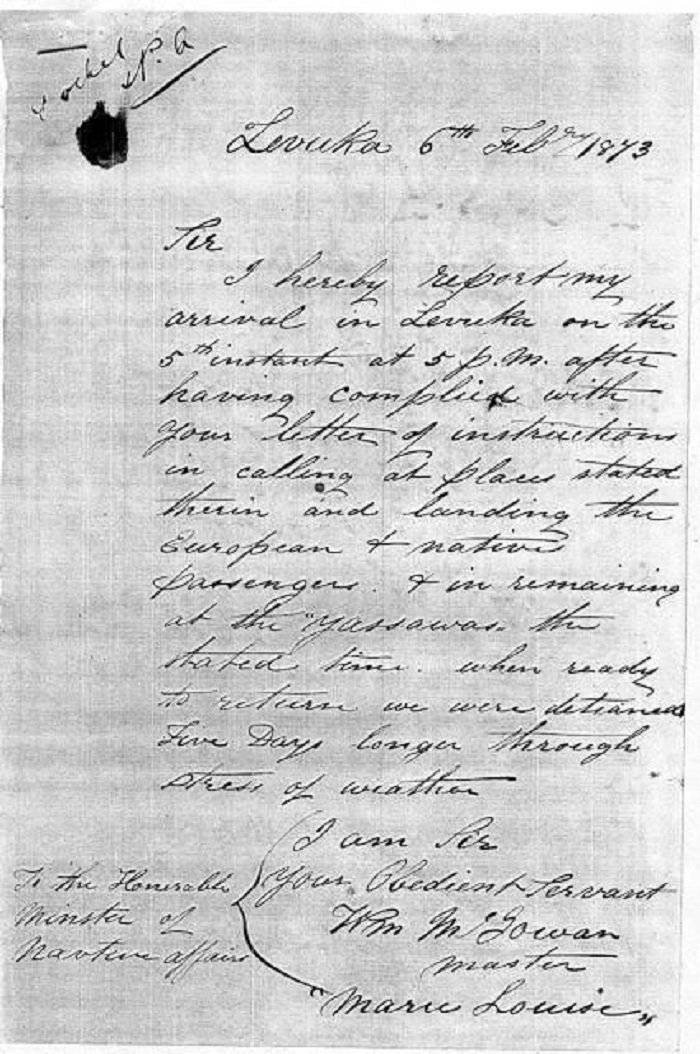 Levuka 6th Febry 1873
Sir
I hereby report my
arrival in Levuka on the
5th instant at 5 p.m. after
having complied with
your letter of instructions
in calling at places stated
therin and landing the
European & native
passengers. & in remaining
at the "Yassawas" the
stated time. when ready
to return we were detained
Five Days longer through
stress of weather
I am Sir
Your Obedient Servant
Wm McGowan
master
"Marie Louise"
To the Honerable
Minster of
Navtive affairs